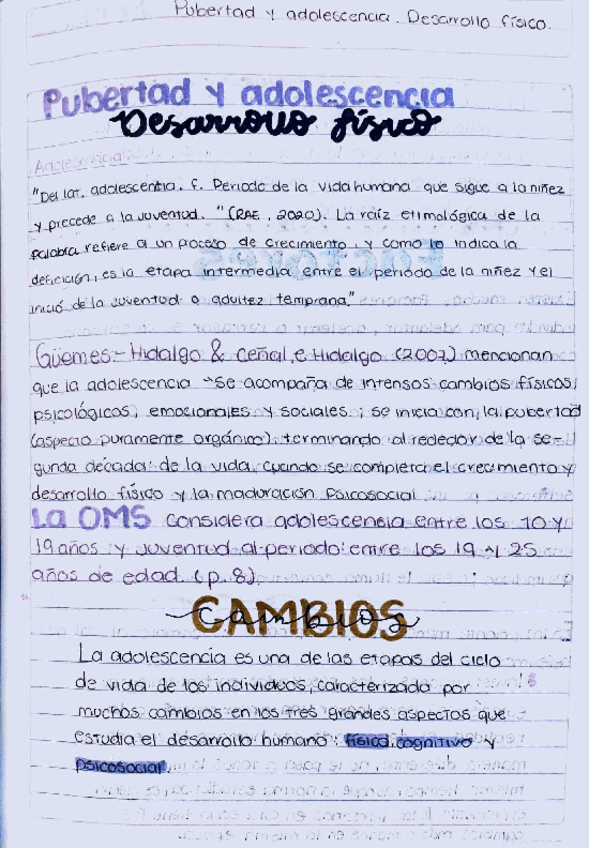 Pubertad y adolescencia. Desarrollo físico.
Pubertad y adolescencia
Desarrollo físico
Adolescencia
"Del lat. adolescentia. f. Periodo de la vida humana que sigue a la niñez
y precede a la juventud. " (RAE, 2020). La raíz etimológica de la
palabra refiere a un proceso de crecimiento, y como lo indica la
definición, es la etapa intermedia entre el periodo de la niñez y el
inició de la juventud o adultez temprana."
Güemes-Hidalgo & Ceñal, e Hidalgo (2007) mencionan
que la adolescencia "Se acompaña de intensos cambios físicos,
psicológicos, emocionales y sociales; se inicia con la pubertad
(aspecto puramente orgánico), terminando al rededor de la se-
gunda década de la vida, cuando se completa el crecimiento y
desarrollo físico y la maduración psicosocial
La OMS considera adolescencia entre los 10 y
19 años y juventud al periodo entre los 19 y 25
años de edad. (p.8)
CAMBIOS
cambios
La adolescencia es una de las etapas del ciclo
de vida de los individuos, caracterizada por
muchos cambios en los tres grandes aspectos que
estudia el desarrollo humano: físico, cognitivo y
psicosocial.